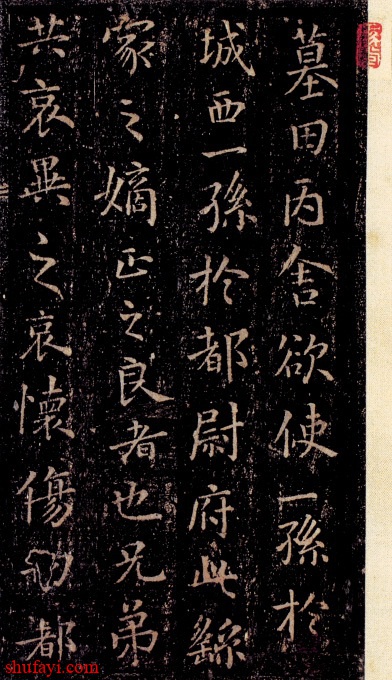 墓田丙舍欲使一孫於
城西一孫於都尉府此繇
家之嫡正之良者也兄弟
共哀異之哀懷傷切都
shufayi.com